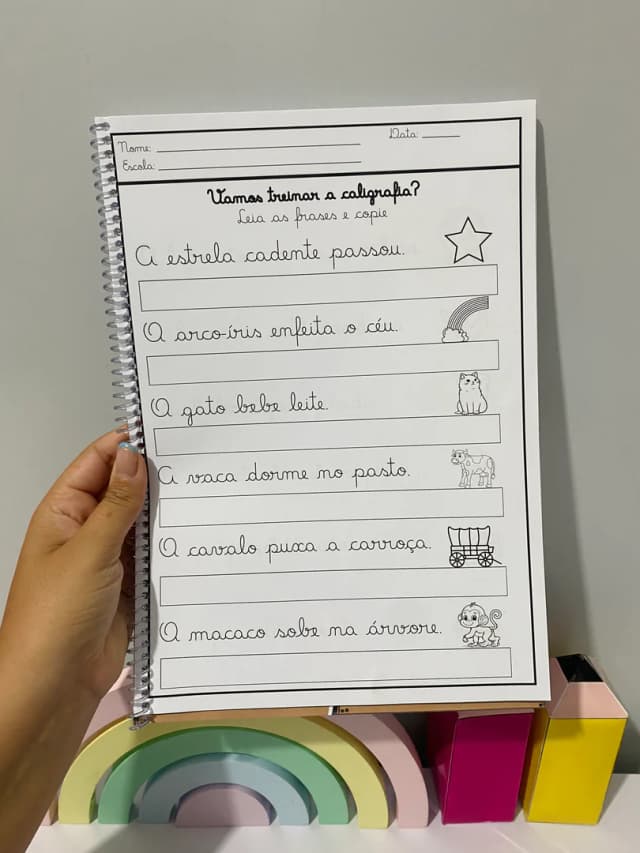 Nome: Data:
Escola:
Vamos treinar a caligrafia?
Leia as frases e copie
A estrela cadente passou.
O arco-íris enfeita o céu.
O gato bebe leite.
A vaca dorme no pasto.
O cavalo puxa a carroça.
O macaco sobe na árvore.